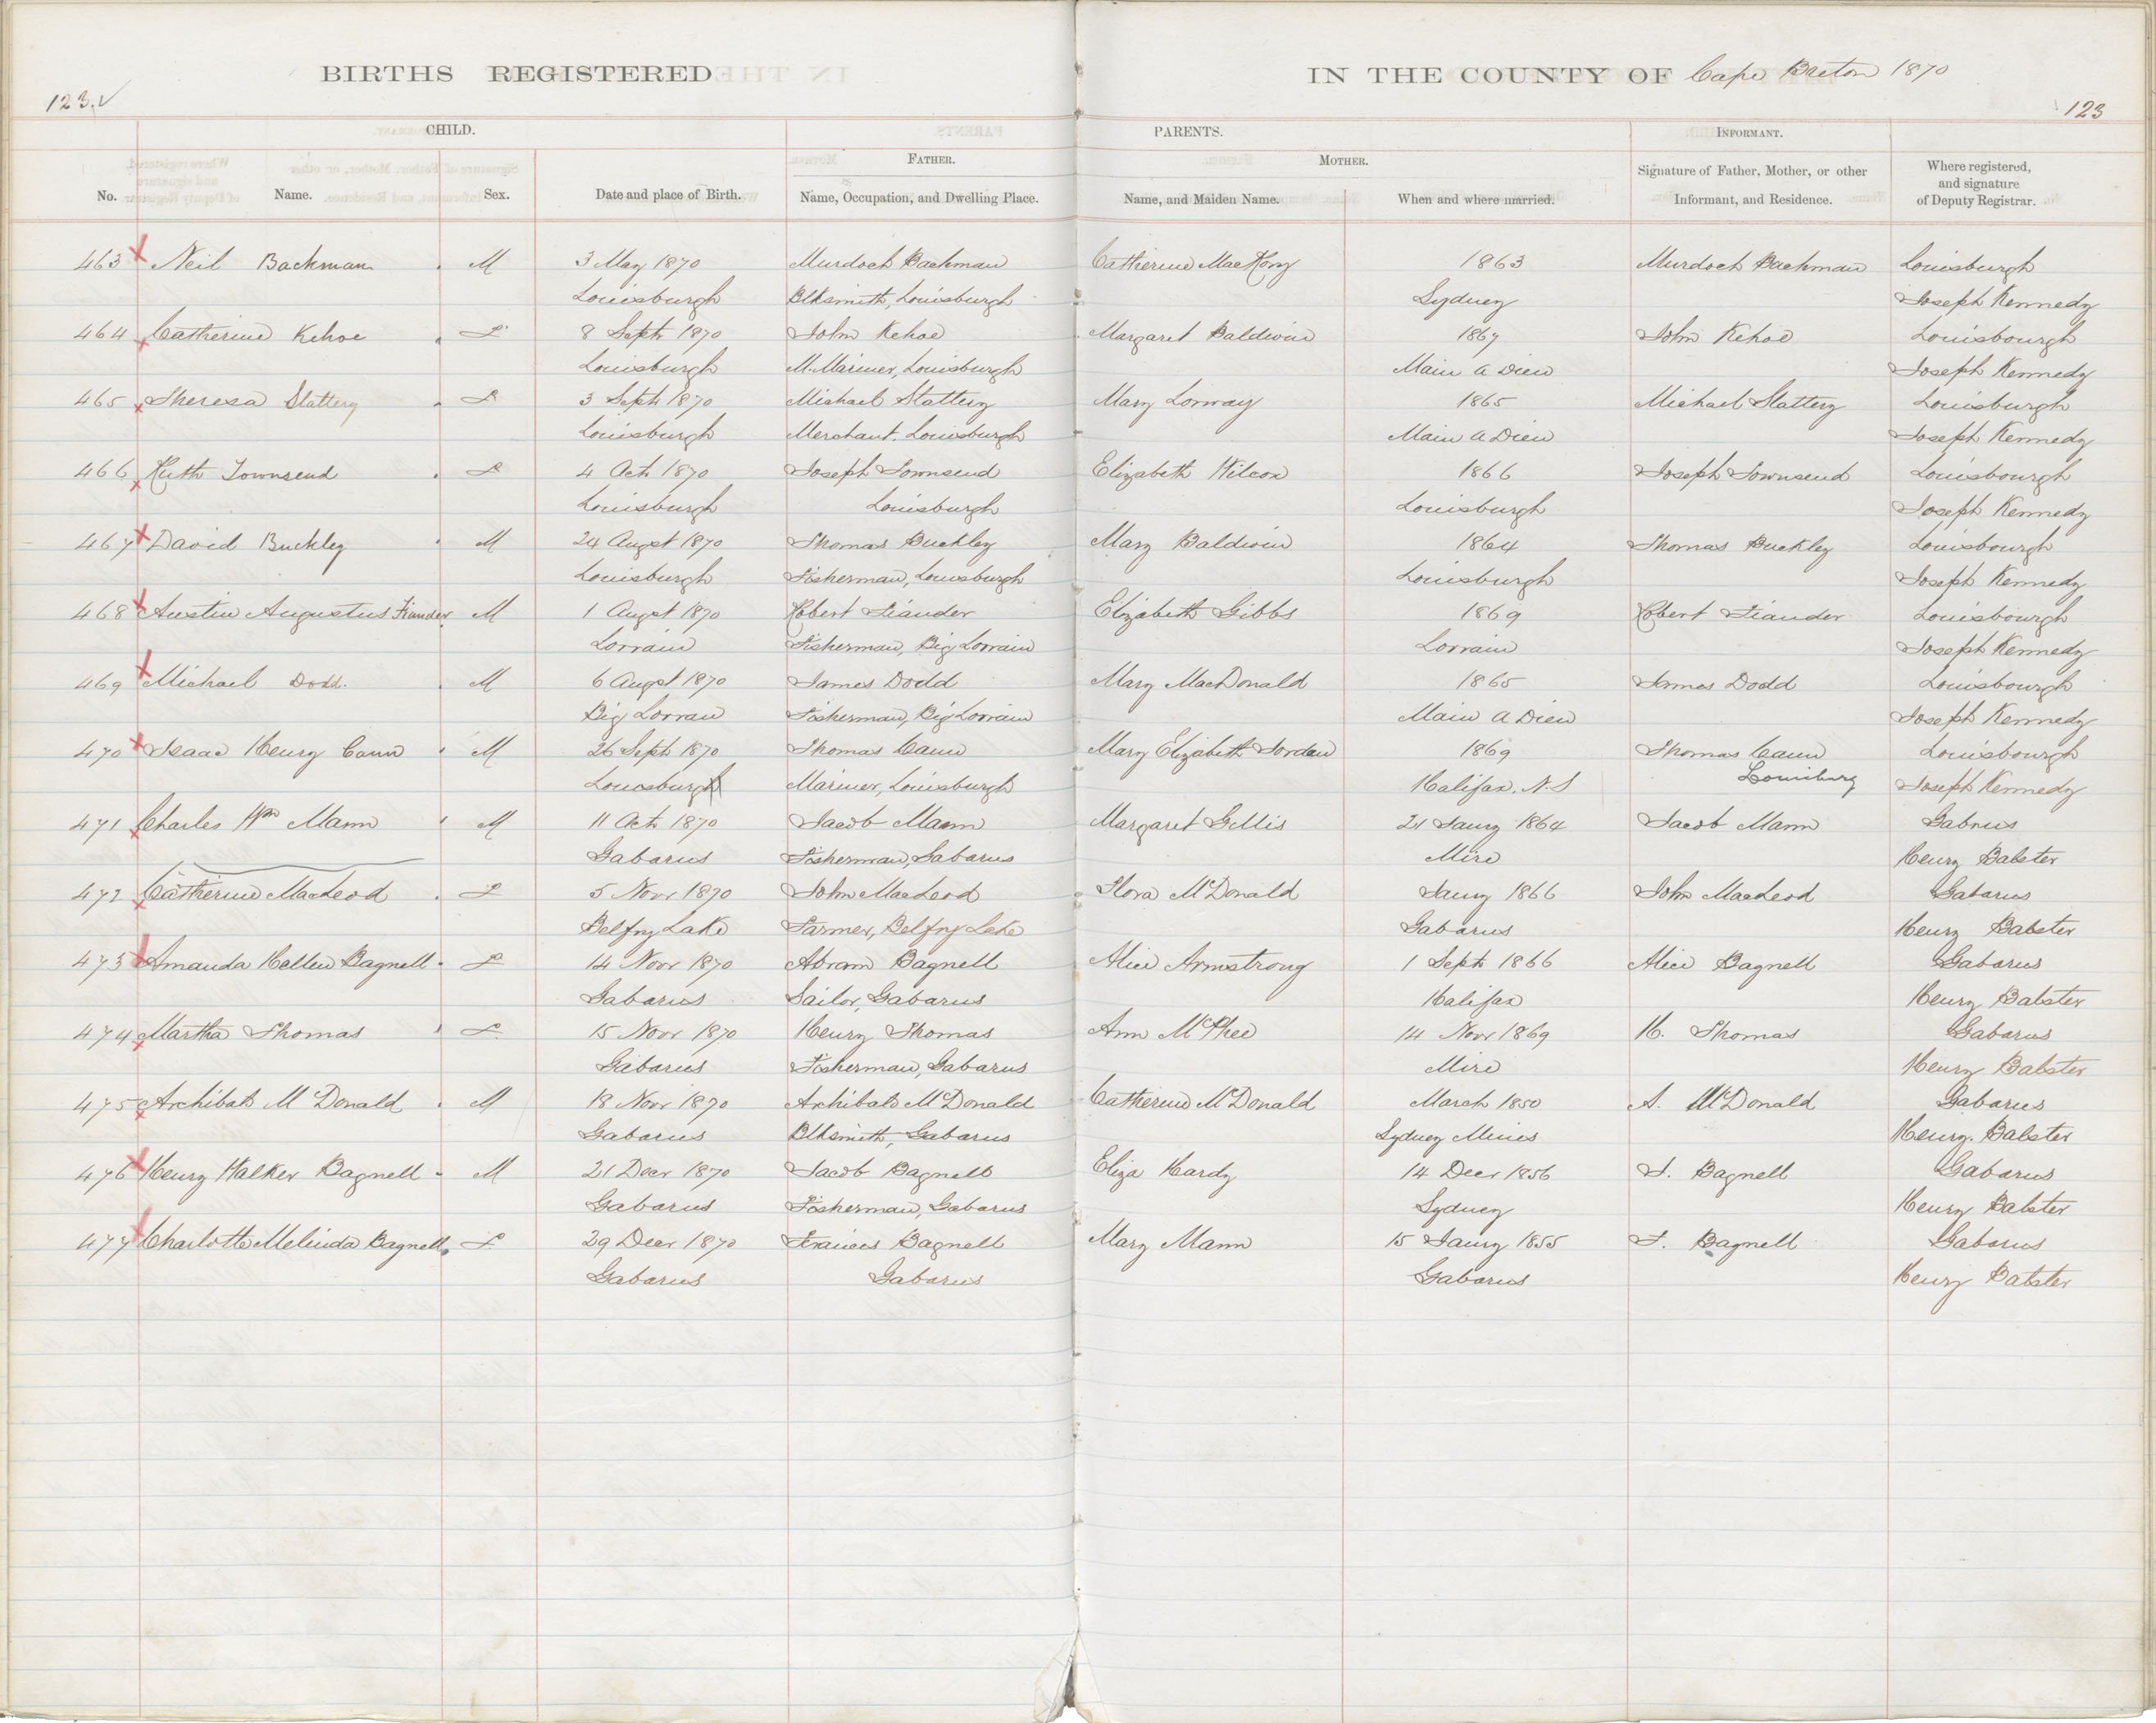 BIRTHS REGISTERED IN THE COUNTY OF Cape Breton 1870
123. 123
CHILD. PARENTS. INFORMANT.
FATHER. MOTHER.
No. Name. Sex. Date and place of Birth. Name, Occupation, and Dwelling Place. Name, and Maiden Name. When and where married. Signature of Father, Mother, or other Informant, and Residence. Where registered, and signature of Deputy Registrar.
463 Neil Backman M 3 May 1870 Murdoch Bachman Catherine 1863 Murdoch Bachman Louisburgh
Louisburgh Blksmith, Louisburgh Sydney Joseph Kennedy
464 Catherine Kehoe F 8 Sept 1870 John Kehoe Margaret Baldwin 1867 John Kehoe Louisbourgh
Louisburgh M. Mariner, Louisburgh Main a Dieu Joseph Kennedy
465 Theresa Slattery F 3 Sept 1870 Michael Slattery Mary Lorway 1865 Michael Slattery Louisburgh
Louisburgh Merchant, Louisburgh Main a Dieu Joseph Kennedy
466 Ruth Townsend F 4 Oct 1870 Joseph Townsend Elizabeth Wilcox 1866 Joseph Townsend Louisbourgh
Louisburgh Louisburgh Louisburgh Joseph Kennedy
467 David Buckley M 24 Augst 1870 Thomas Buckley Mary Baldwin 1864 Thomas Buckley Louisbourgh
Louisburgh Fisherman, Louisburgh Louisburgh Joseph Kennedy
468 Austin Augustus Fiander M 1 Augst 1870 Robert Fiander Elizabeth Gibbs 1869 Robert Fiander Louisbourgh
Lorrain Fisherman, Big Lorrain Lorrain Joseph Kennedy
469 Michael Dodd. M 6 Augst 1870 James Dodd Mary MacDonald 1865 James Dodd Louisbourgh
Big Lorran Fisherman, Big Lorrain Main a Dieu Joseph Kennedy
470 Isaac Henry Cann M 26 Sept 1870 Thomas Cann Mary Elizabeth Jordan 1869 Thomas Cann Louisbourgh
Louisburgh Mariner, Louisburgh Halifax. N.S Louisburg Joseph Kennedy
471 Charles Wm Mann M 11 Oct 1870 Jacob Mann Margaret Gillis 21 Jany 1864 Jacob Mann Gabrus
Gabarus Fisherman, Gabarus Mire Henry Babster
472 Catherine MacLeod F 5 Novr 1870 John MacLeod Flora McDonald Jany 1866 John MacLeod Gabarus
Belfry Lake Farmer, Belfry Lake Gabarus Henry Babster
473 Amanda Hellen Bagnell F 14 Novr 1870 Abram Bagnell Alice Armstrong 1 Sept 1866 Alice Bagnell Gabarus
Gabarus Sailor, Gabarus Halifax Henry Babster
474 Martha Thomas F 15 Novr 1870 Henry Thomas Ann McPhee 14 Novr 1869 H. Thomas Gabarus
Gabarus Fisherman, Gabarus Mire Henry Babster
475 Archibald McDonald M 18 Novr 1870 Archibald McDonald Catherine McDonald March 1850 A. McDonald Gabarus
Gabarus Blksmith, Gabarus Sydney Mines Henry Babster
476 Henry Walker Bagnell M 21 Decr 1870 Jacob Bagnell Eliza Hardy 14 Decr 1856 J. Bagnell Gabarus
Gabarus Fisherman, Gabarus Sydney Henry Babster
477 Charlotte Melinda Bagnell F 29 Decr 1870 Francis Bagnell Mary Mann 15 Jany 1855 F. Bagnell Gabarus
Gabarus Gabarus Gabarus Henry Babster